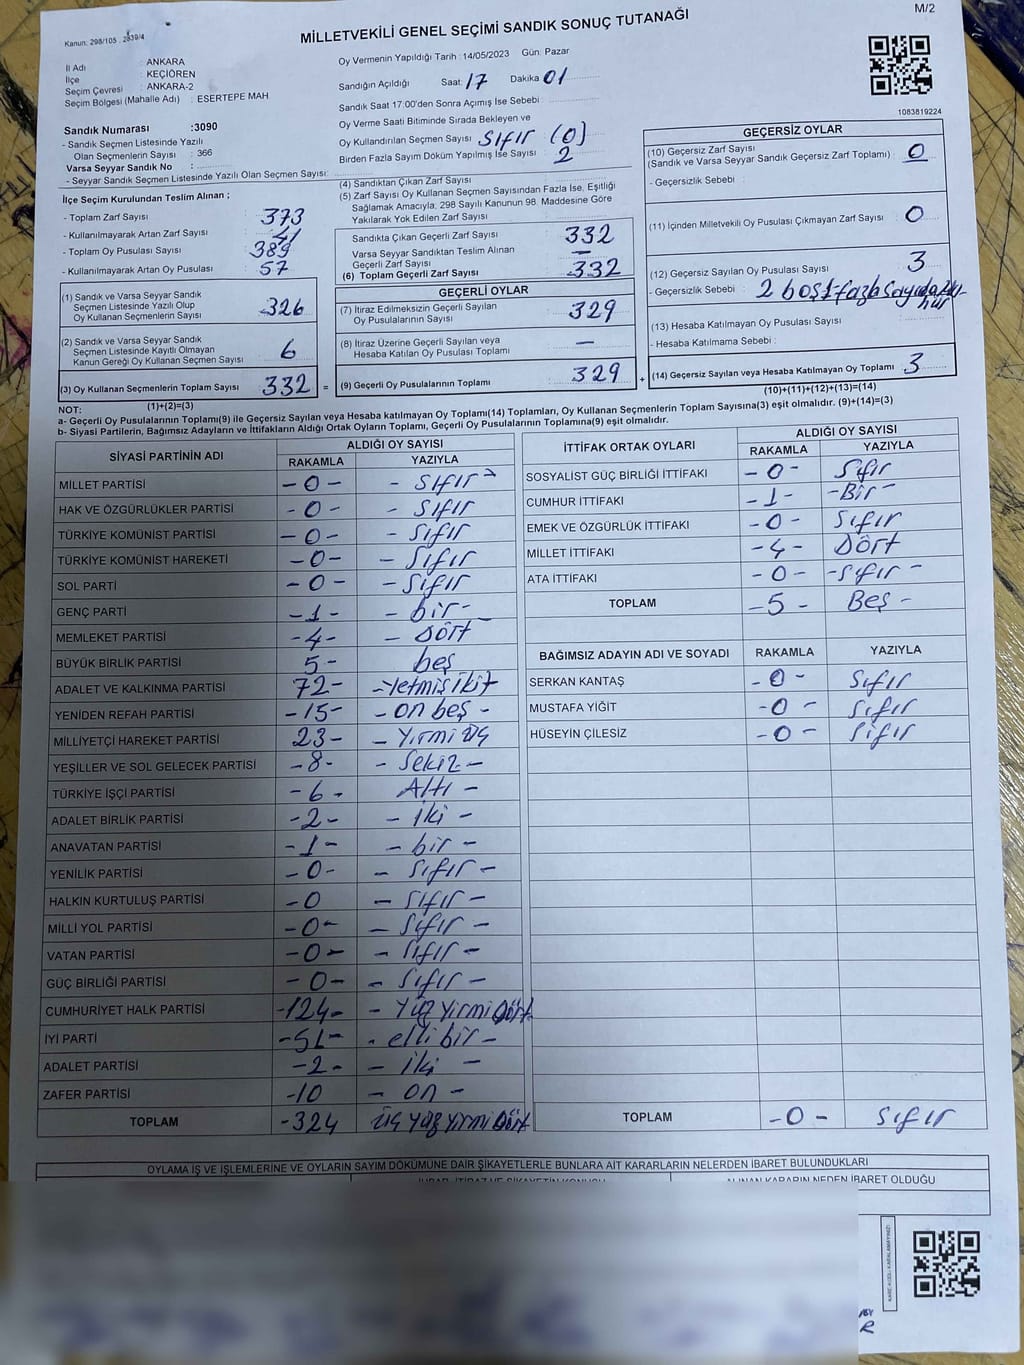 M/2
Kanun: 298/105 . 2839/4
MİLLETVEKİLİ GENEL SEÇİMİ SANDIK SONUÇ TUTANAĞI
İl Adı : ANKARA
İlçe : KEÇİÖREN
Seçim Çevresi : ANKARA-2
Seçim Bölgesi (Mahalle Adı) : ESERTEPE MAH
Sandık Numarası :3090
- Sandık Seçmen Listesinde Yazılı
Olan Seçmenlerin Sayısı : 366
Varsa Seyyar Sandık No :
- Seyyar Sandık Seçmen Listesinde Yazılı Olan Seçmen Sayısı:
Oy Vermenin Yapıldığı Tarih : 14/05/2023 Gün: Pazar
Sandığın Açıldığı Saat: 17 Dakika 01
Sandık Saat 17:00'den Sonra Açımış İse Sebebi :
Oy Verme Saati Bitiminde Sırada Bekleyen ve
Oy Kullandırılan Seçmen Sayısı : Sıfır (0)
Birden Fazla Sayım Döküm Yapılmış İse Sayısı : 2
1083819224
İlçe Seçim Kurulundan Teslim Alınan ;
- Toplam Zarf Sayısı : 373
- Kullanılmayarak Artan Zarf Sayısı : 41
- Toplam Oy Pusulası Sayısı : 389
- Kullanılmayarak Artan Oy Pusulası : 57
(1) Sandık ve Varsa Seyyar Sandık
Seçmen Listesinde Yazılı Olup
Oy Kullanan Seçmenlerin Sayısı 326
(2) Sandık ve Varsa Seyyar Sandık
Seçmen Listesinde Kayıtlı Olmayan
Kanun Gereği Oy Kullanan Seçmen Sayısı 6
(3) Oy Kullanan Seçmenlerin Toplam Sayısı 332 =
(1)+(2)=(3)
(4) Sandıktan Çıkan Zarf Sayısı :
(5) Zarf Sayısı Oy Kullanan Seçmen Sayısından Fazla İse, Eşitliği
Sağlamak Amacıyla, 298 Sayılı Kanunun 98. Maddesine Göre
Yakılarak Yok Edilen Zarf Sayısı :
Sandıkta Çıkan Geçerli Zarf Sayısı 332
Varsa Seyyar Sandıktan Teslim Alınan
Geçerli Zarf Sayısı —
(6) Toplam Geçerli Zarf Sayısı 332
GEÇERLİ OYLAR
(7) İtiraz Edilmeksizin Geçerli Sayılan
Oy Pusulalarının Sayısı 329
(8) İtiraz Üzerine Geçerli Sayılan veya
Hesaba Katılan Oy Pusulası Toplamı —
(9) Geçerli Oy Pusulalarının Toplamı 329 +
GEÇERSİZ OYLAR
(10) Geçersiz Zarf Sayısı
(Sandık ve Varsa Seyyar Sandık Geçersiz Zarf Toplamı) : 0
- Geçersizlik Sebebi :
(11) İçinden Milletvekili Oy Pusulası Çıkmayan Zarf Sayısı : 0
(12) Geçersiz Sayılan Oy Pusulası Sayısı : 3
- Geçersizlik Sebebi : 2 boş 1 fazla
(13) Hesaba Katılmayan Oy Pusulası Sayısı :
- Hesaba Katılmama Sebebi :
(14) Geçersiz Sayılan veya Hesaba Katılmayan Oy Toplamı 3
(10)+(11)+(12)+(13)=(14)
NOT:
a- Geçerli Oy Pusulalarının Toplamı(9) ile Geçersiz Sayılan veya Hesaba katılmayan Oy Toplamı(14) Toplamları, Oy Kullanan Seçmenlerin Toplam Sayısına(3) eşit olmalıdır. (9)+(14)=(3)
b- Siyasi Partilerin, Bağımsız Adayların ve İttifakların Aldığı Ortak Oyların Toplamı, Geçerli Oy Pusulalarının Toplamına(9) eşit olmalıdır.
SİYASİ PARTİNİN ADI ALDIĞI OY SAYISI
RAKAMLA YAZIYLA
MİLLET PARTİSİ -0- - Sıfır -
HAK VE ÖZGÜRLÜKLER PARTİSİ -0- - Sıfır
TÜRKİYE KOMÜNİST PARTİSİ -0- - Sıfır
TÜRKİYE KOMÜNİST HAREKETİ -0- - Sıfır
SOL PARTİ -0- - Sıfır
GENÇ PARTİ -1- - bir-
MEMLEKET PARTİSİ -4- - Dört
BÜYÜK BİRLİK PARTİSİ 5- beş
ADALET VE KALKINMA PARTİSİ 72- -Yetmiş iki
YENİDEN REFAH PARTİSİ -15- - on beş -
MİLLİYETÇİ HAREKET PARTİSİ 23- - Yirmi üç
YEŞİLLER VE SOL GELECEK PARTİSİ -8- - Sekiz -
TÜRKİYE İŞÇİ PARTİSİ -6- Altı -
ADALET BİRLİK PARTİSİ -2- - İki -
ANAVATAN PARTİSİ -1- - bir -
YENİLİK PARTİSİ -0- - Sıfır -
HALKIN KURTULUŞ PARTİSİ -0 - Sıfır -
MİLLİ YOL PARTİSİ -0- - Sıfır -
VATAN PARTİSİ -0- - Sıfır -
GÜÇ BİRLİĞİ PARTİSİ -0- - Sıfır -
CUMHURİYET HALK PARTİSİ -124- - Yüz yirmi Dört
İYİ PARTİ -51- - elli bir -
ADALET PARTİSİ -2- - İki -
ZAFER PARTİSİ -10 - on -
TOPLAM -324 üç yüz yirmi Dört
İTTİFAK ORTAK OYLARI ALDIĞI OY SAYISI
RAKAMLA YAZIYLA
SOSYALİST GÜÇ BİRLİĞİ İTTİFAKI -0- Sıfır
CUMHUR İTTİFAKI -1- -Bir-
EMEK VE ÖZGÜRLÜK İTTİFAKI -0- Sıfır
MİLLET İTTİFAKI -4- Dört
ATA İTTİFAKI -0- -Sıfır-
TOPLAM -5- Beş -
BAĞIMSIZ ADAYIN ADI VE SOYADI RAKAMLA YAZIYLA
SERKAN KANTAŞ -0- Sıfır
MUSTAFA YİĞİT -0- Sıfır
HÜSEYİN ÇİLESİZ -0- Sıfır
TOPLAM -0- Sıfır
OYLAMA İŞ VE İŞLEMLERİNE VE OYLARIN SAYIM DÖKÜMÜNE DAİR ŞİKAYETLERLE BUNLARA AİT KARARLARIN NELERDEN İBARET BULUNDUKLARI
ALINAN KARARIN NEDEN İBARET OLDUĞU